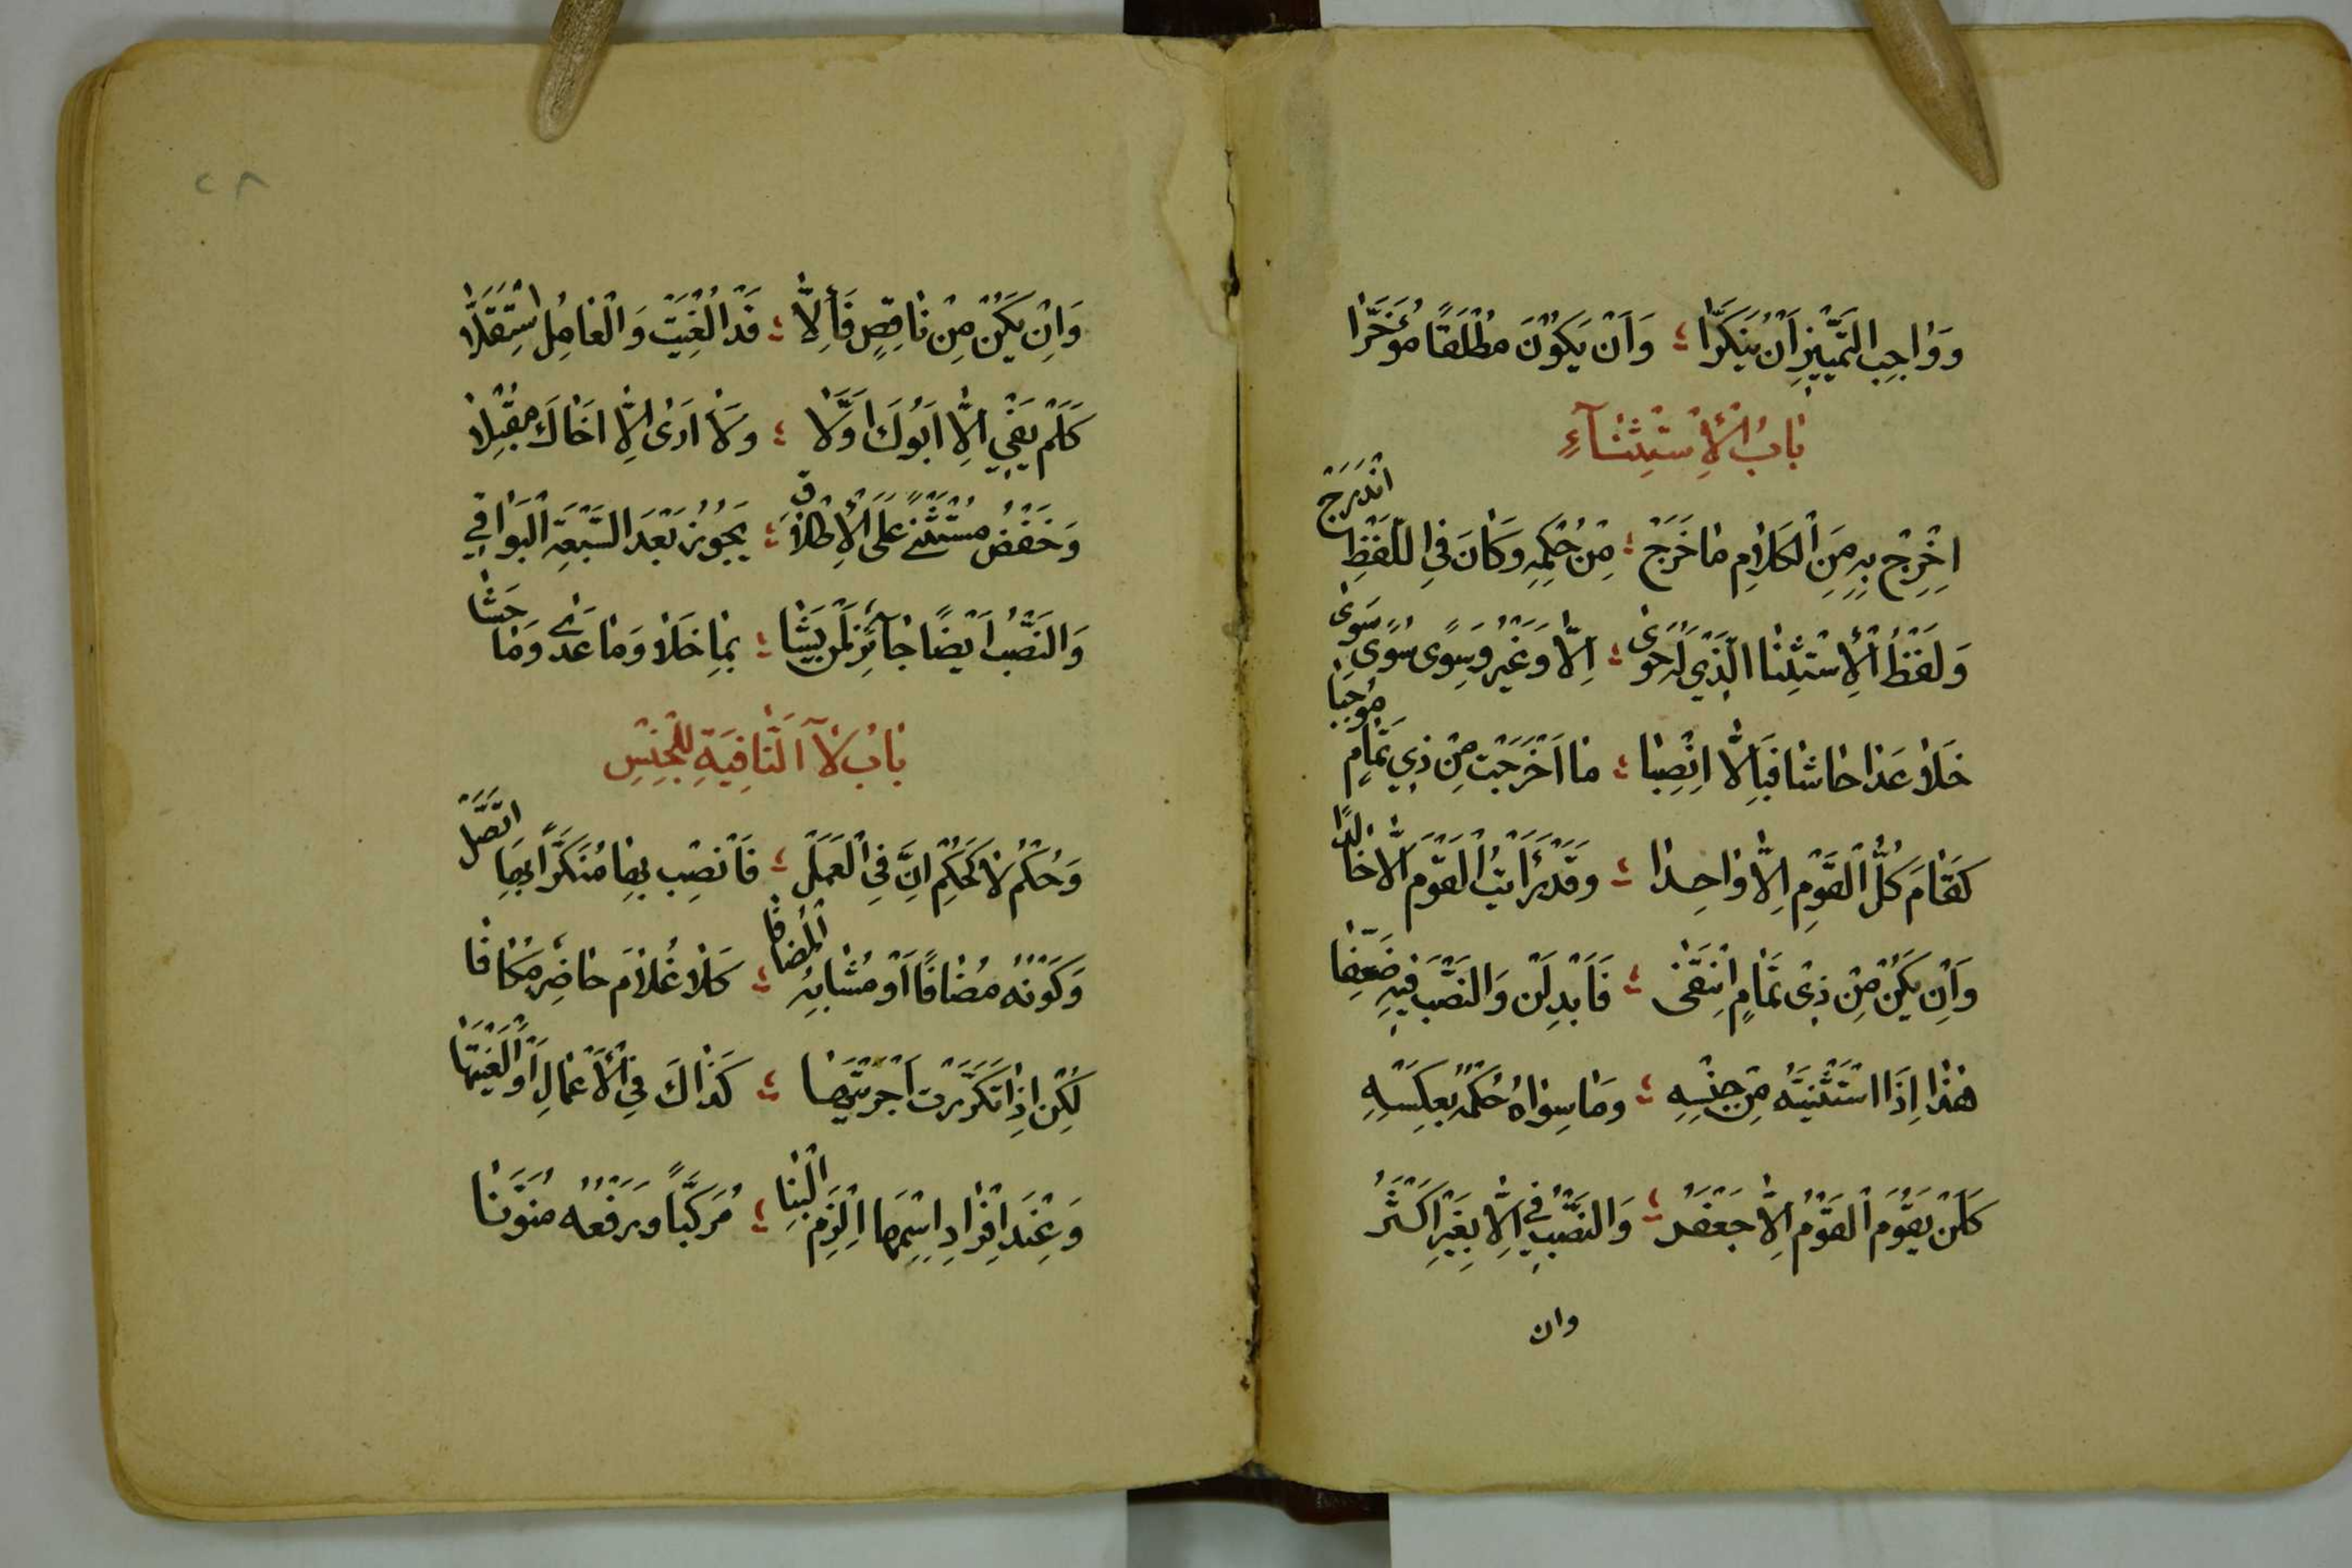 وَوَاجِبُ التَّمْيِيزِ اَنْ يُنَكَّرَا ؛ وَاَنْ يَكُوْنَ مُطْلَقًا مُؤَخَّرَا
بَابُ الْأِسْتِثْنَآءِ
اِخْرِجْ بِهِ مِنَ الْكَلَامِ مَا خَرَجْ ؛ مِنْ حُكْمِهِ وَكَانَ فِي اللَّفْظِ انْدَرَجْ
وَلَفْظُ الْأِسْتِثْنَا الَّذِي لَهُ حَوٰى ؛ اِلَّا وَغَيْرُ وَسِوًى سُوًى سَوٰى
خَلَا عَدَا حَاشَا فَبِاِلَّا انْصِبَا ؛ مَا اَخْرَجَتْ مِنْ ذِي تَمَامٍ مُوْجَبَا
كَقَامَ كُلُّ الْقَوْمِ اِلَّا وَاحِدَا ؛ وَقَدْ رَأَيْتُ الْقَوْمَ اِلَّا خَالِدًا
وَاِنْ يَكُنْ مِنْ ذِيْ تَمَامٍ انْتَفٰى ؛ فَاَبْدِلَنْ وَالنَّصْبُ فِيْهِ ضُعِّفَا
هٰذَا اِذَا اسْتَثْنَيْتَهُ مِنْ جِنْسِهِ ؛ وَمَا سِوَاهُ حُكْمُهُ بِعَكْسِهِ
كَلَنْ يَقُوْمَ الْقَوْمُ اِلَّا جَعْفَرُ ؛ وَالنَّصْبُ فِي اِلَّا بِعَيْرَ اَكْثَرُ
وان
٢٨
وَاِنْ يَكُنْ مِنْ نَاقِصٍ فَاِلَّا ؛ قَدْ اُلْغِيَتْ وَالْعَامِلُ اسْتَقَلَّا
كَلَمْ يَقُمْ اِلَّا اَبُوْكَ اَوَّلَا ؛ وَلَا اَرٰى اِلَّا اَخَاكَ مُقْبِلَا
وَخَفْضُ مُسْتَثْنًى عَلَى الْأِطْلَاقِ ؛ يَجُوْزُ بَعْدَ السَّبْعَةِ الْبَوَاقِي
وَالنَّصْبُ اَيْضًا جَآئِزٌ لِمَنْ يَشَا ؛ بِمَا خَلَا وَمَا عَدٰى وَمَا حَشَا
بَابُ لَآ النَّافِيَةِ لِلْجِنْسِ
وَحُكْمُ لَا كَحُكْمِ اِنَّ فِي الْعَمَلْ ؛ فَانْصِبْ بِهَا مُنَكَّرًا بِهَا اتَّصَلْ
وَكَوْنُهُ مُضَافًا اَوْ مُشَابِهُ الْمُضَافَا ؛ كَلَا غُلَامَ حَاضِرٌ مُكَافَا
لٰكِنْ اِذَا تَكَرَّرَتْ اَجْرَيْتَهَا ؛ كَذَاكَ فِي الْأَعْمَالِ اَوْ اَلْغَيْتَهَا
وَعِنْدَ اِفْرَادِ اسْمِهَا الْزَمِ الْبِنَا ؛ مُرَكَّبًا وَرَفْعُهُ مُنَوَّنَا